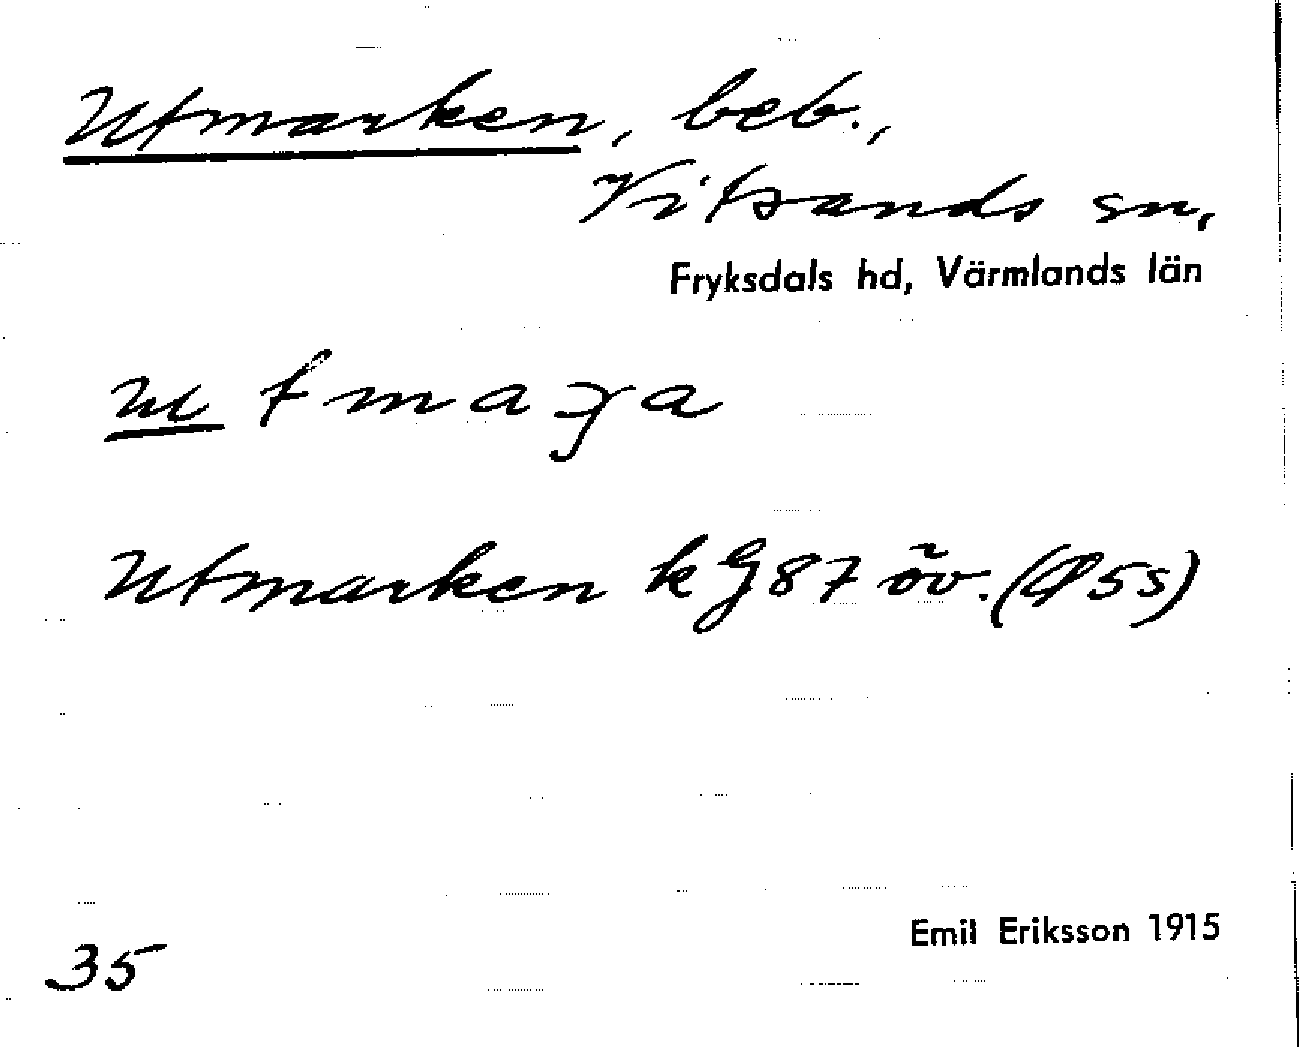 Utmarken, beb.,
Vitsands sn,
Fryksdals hd, Värmlands län
Utmarken k G87 öv. (P5s)
35
Emil Eriksson 1915